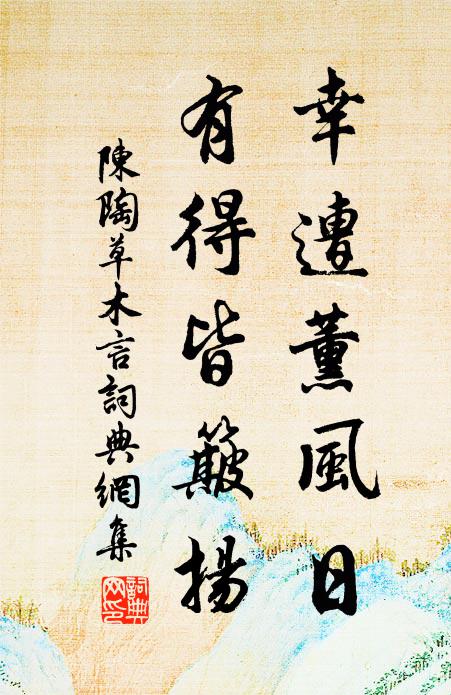 幸遭薰風日
有得皆簸揚
陳陶草木言詞典網集
詞典網印